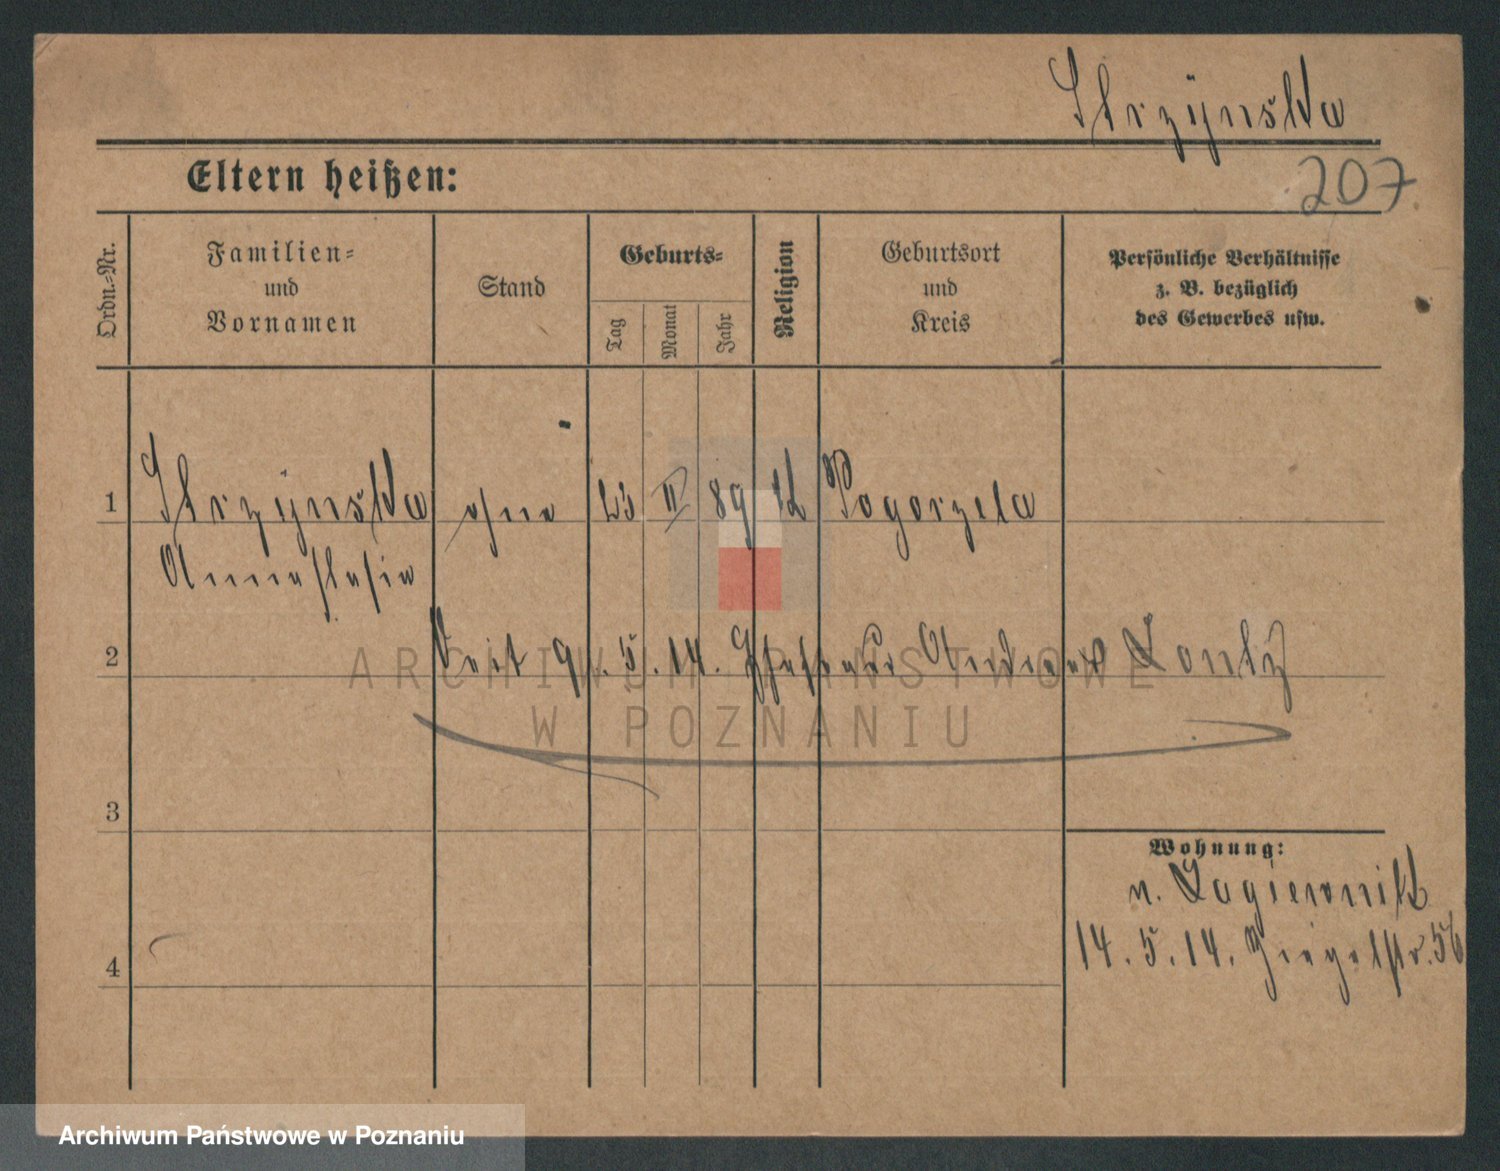 Skrzÿnska
207
Eltern heißen:
Ordn.-Nr.
Familien-
und
Vornamen
Stand
Geburts-
Tag
Monat
Jahr
Religion
Geburtsort
und
Kreis
Persönliche Verhältnisse
z. B. bezüglich
des Gewerbes usw.
1
Skrzÿnska ohne 23 II 89 K Pogorzela
Annastasia
2
Seit 9.5.14. Ehefrau Andreas
3
Wohnung:
n. Lagiewnik
14.5.14. Ziegelstr. 56
4
ARCHIWUM PAŃSTWOWE
W POZNANIU
Archiwum Państwowe w Poznaniu